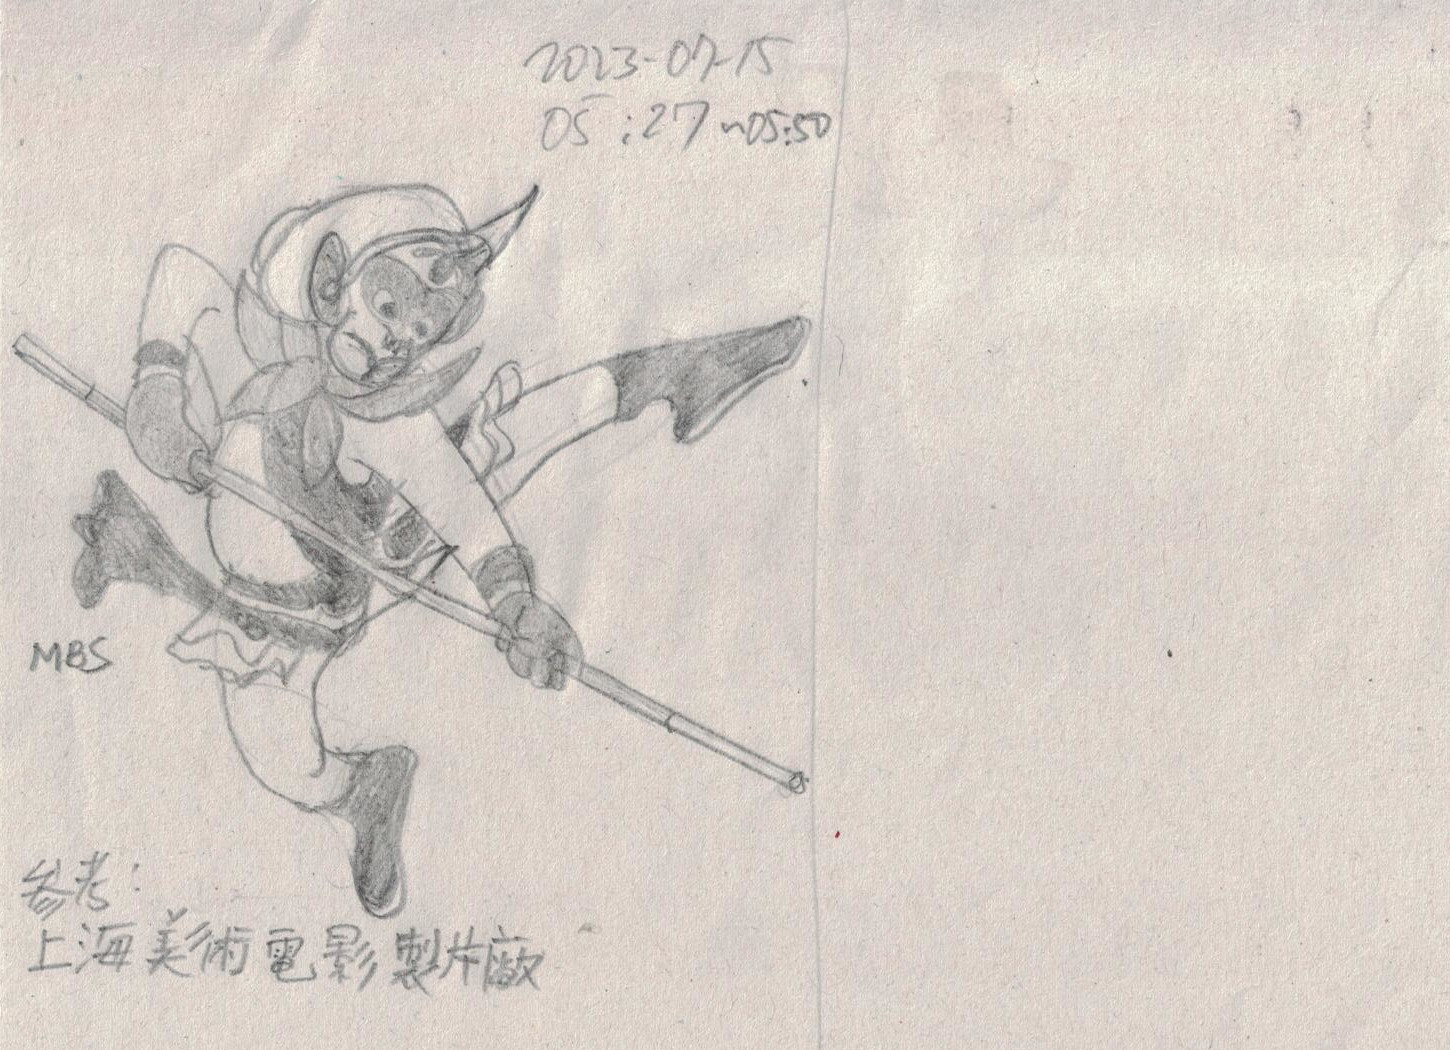 2023-07-15
05:27~05:50
MBS
参考:
上海美術電影製片廠